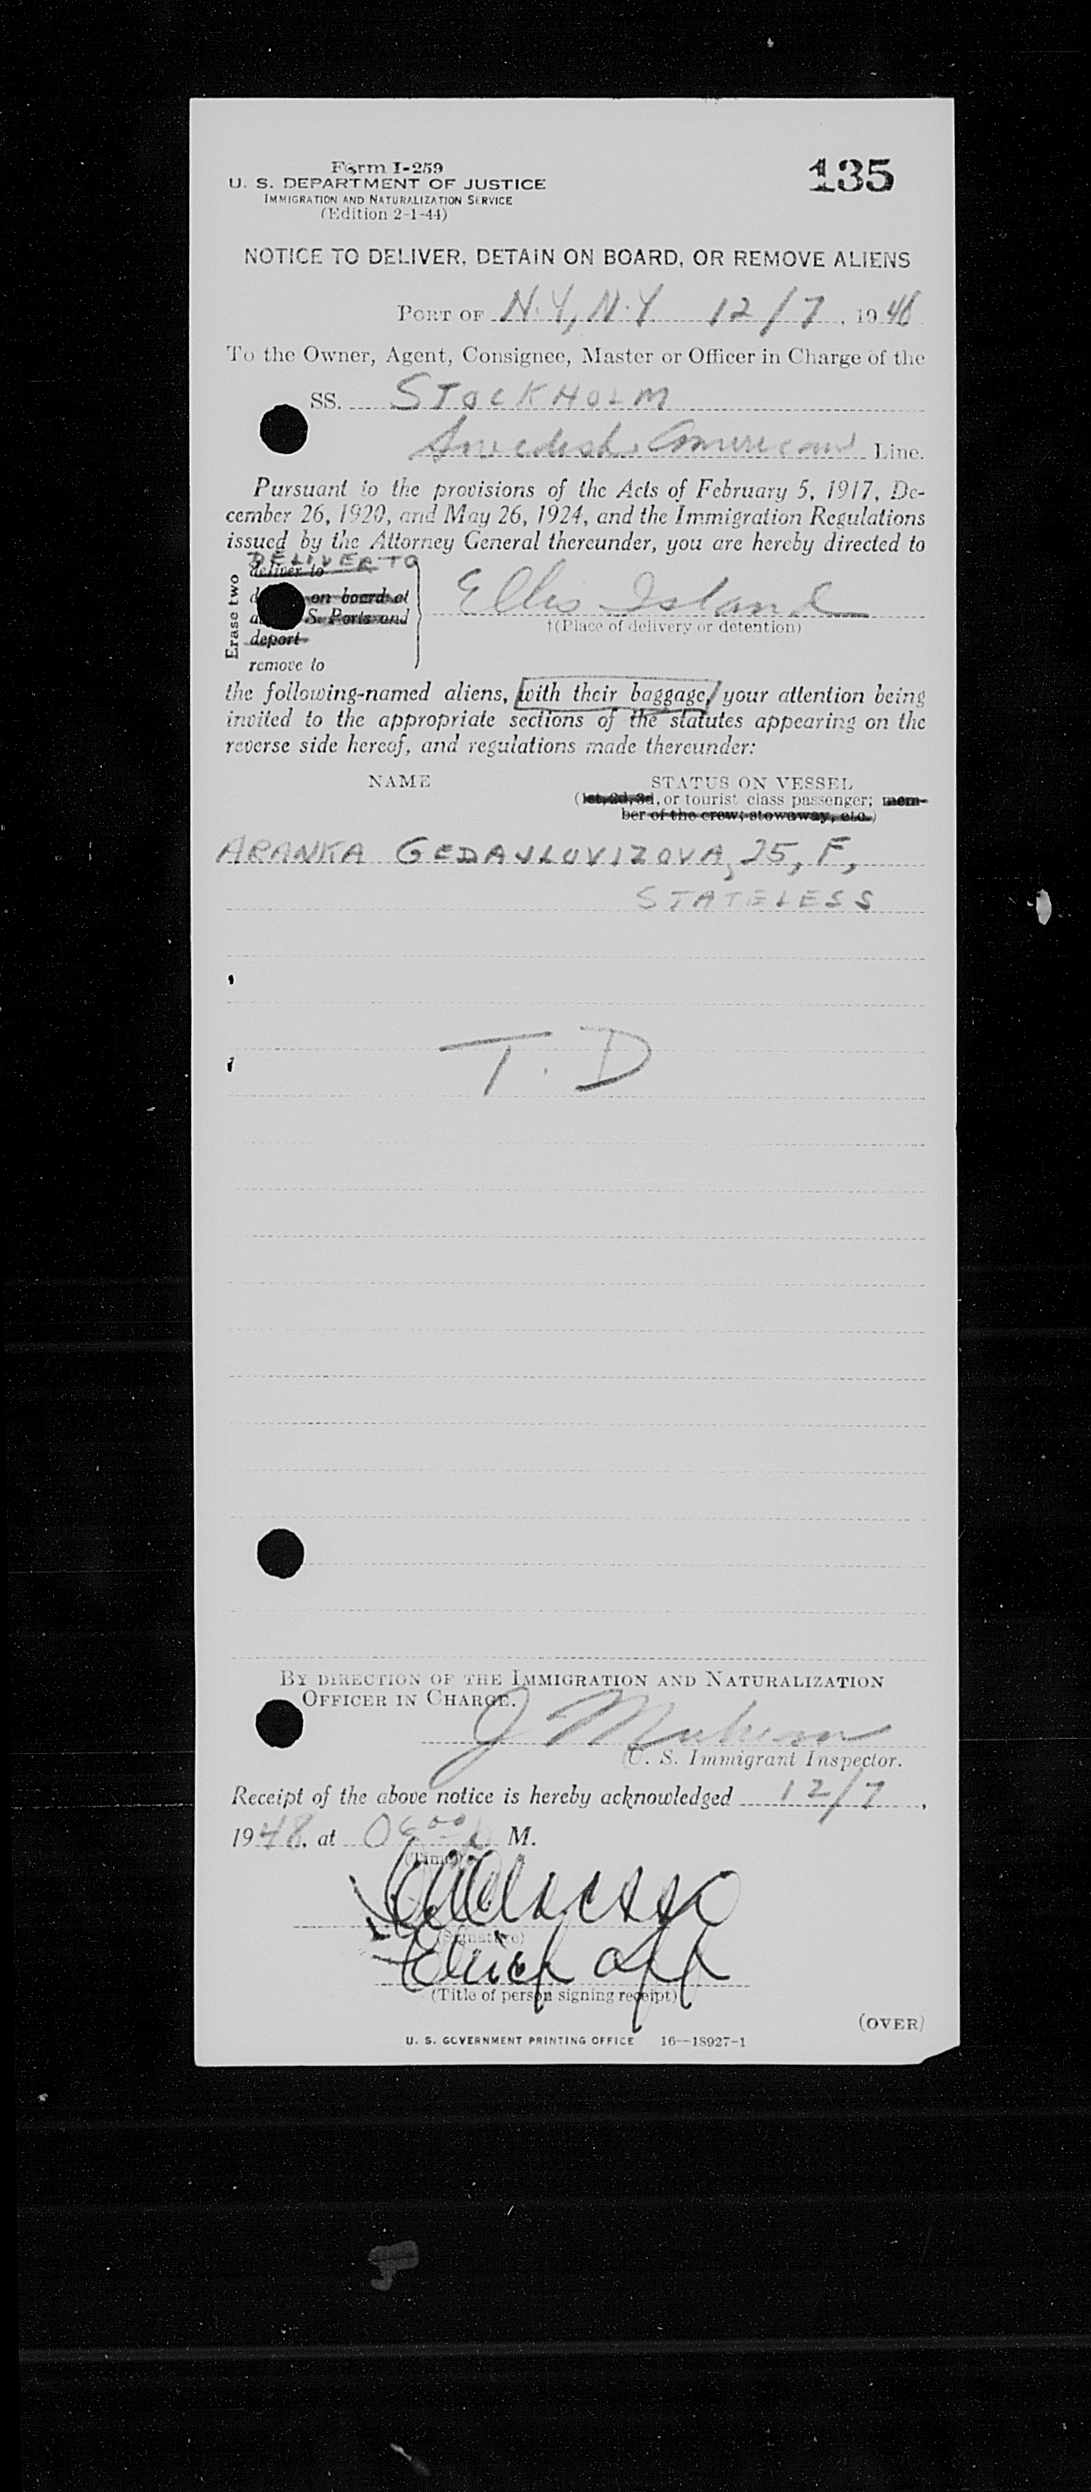 Form I-259
135
U. S. DEPARTMENT OF JUSTICE
IMMIGRATION AND NATURALIZATION SERVICE
(Edition 2-1-44)
NOTICE TO DELIVER, DETAIN ON BOARD, OR REMOVE ALIENS
PORT OF N.Y, N.Y 12/7, 1948
To the Owner, Agent, Consignee, Master or Officer in Charge of the
SS. STOCKHOLM
Swedish American Line.
Pursuant to the provisions of the Acts of February 5, 1917, De-
cember 26, 1920, and May 26, 1924, and the Immigration Regulations
issued by the Attorney General thereunder, you are hereby directed to
DELIVER TO
deliver to
on board at
S. Ports and
deport
remove to
Erase two
Ellis Island
†(Place of delivery or detention)
the following-named aliens, with their baggage, your attention being
invited to the appropriate sections of the statutes appearing on the
reverse side hereof, and regulations made thereunder:
NAME STATUS ON VESSEL
(1st, 2d, 3d, or tourist class passenger; mem-
ber of the crew; stowaway, etc.)
ARANKA GEDAVLOVIZOVA, 25, F,
STATELESS
T. D
BY DIRECTION OF THE IMMIGRATION AND NATURALIZATION
OFFICER IN CHARGE.
J
U. S. Immigrant Inspector.
Receipt of the above notice is hereby acknowledged 12/7,
1948, at M.
(Time)
(Signature)
(Title of person signing receipt)
(OVER)
U. S. GOVERNMENT PRINTING OFFICE 16—18927-1